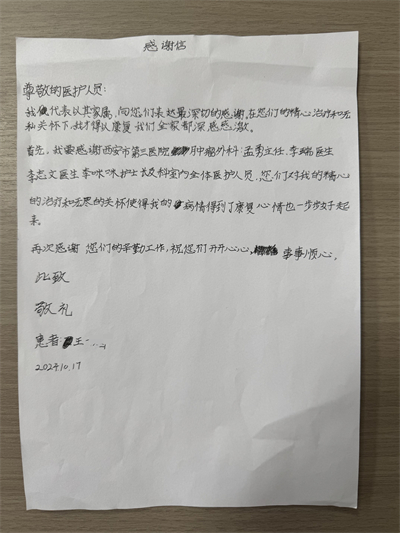 感谢信
尊敬的医护人员:
我仅代表以其家属,向您们表达最深切的感谢,在您们的精心治疗和无
私关怀下,我才得以康复我们全家都深感感激。
首先,我要感谢西安市第三医院肿瘤外科孟勇主任,李璐医生
李志文医生李咪咪护士长及科室内全体医护人员,您们对我的精心
的治疗和无思的关怀使得我的病情得到了康复心情也一步步好起
来。
再次感谢您们的辛勤工作,祝您们开开心心,事事顺心。
此致
敬礼
患者 王
2024.10.17